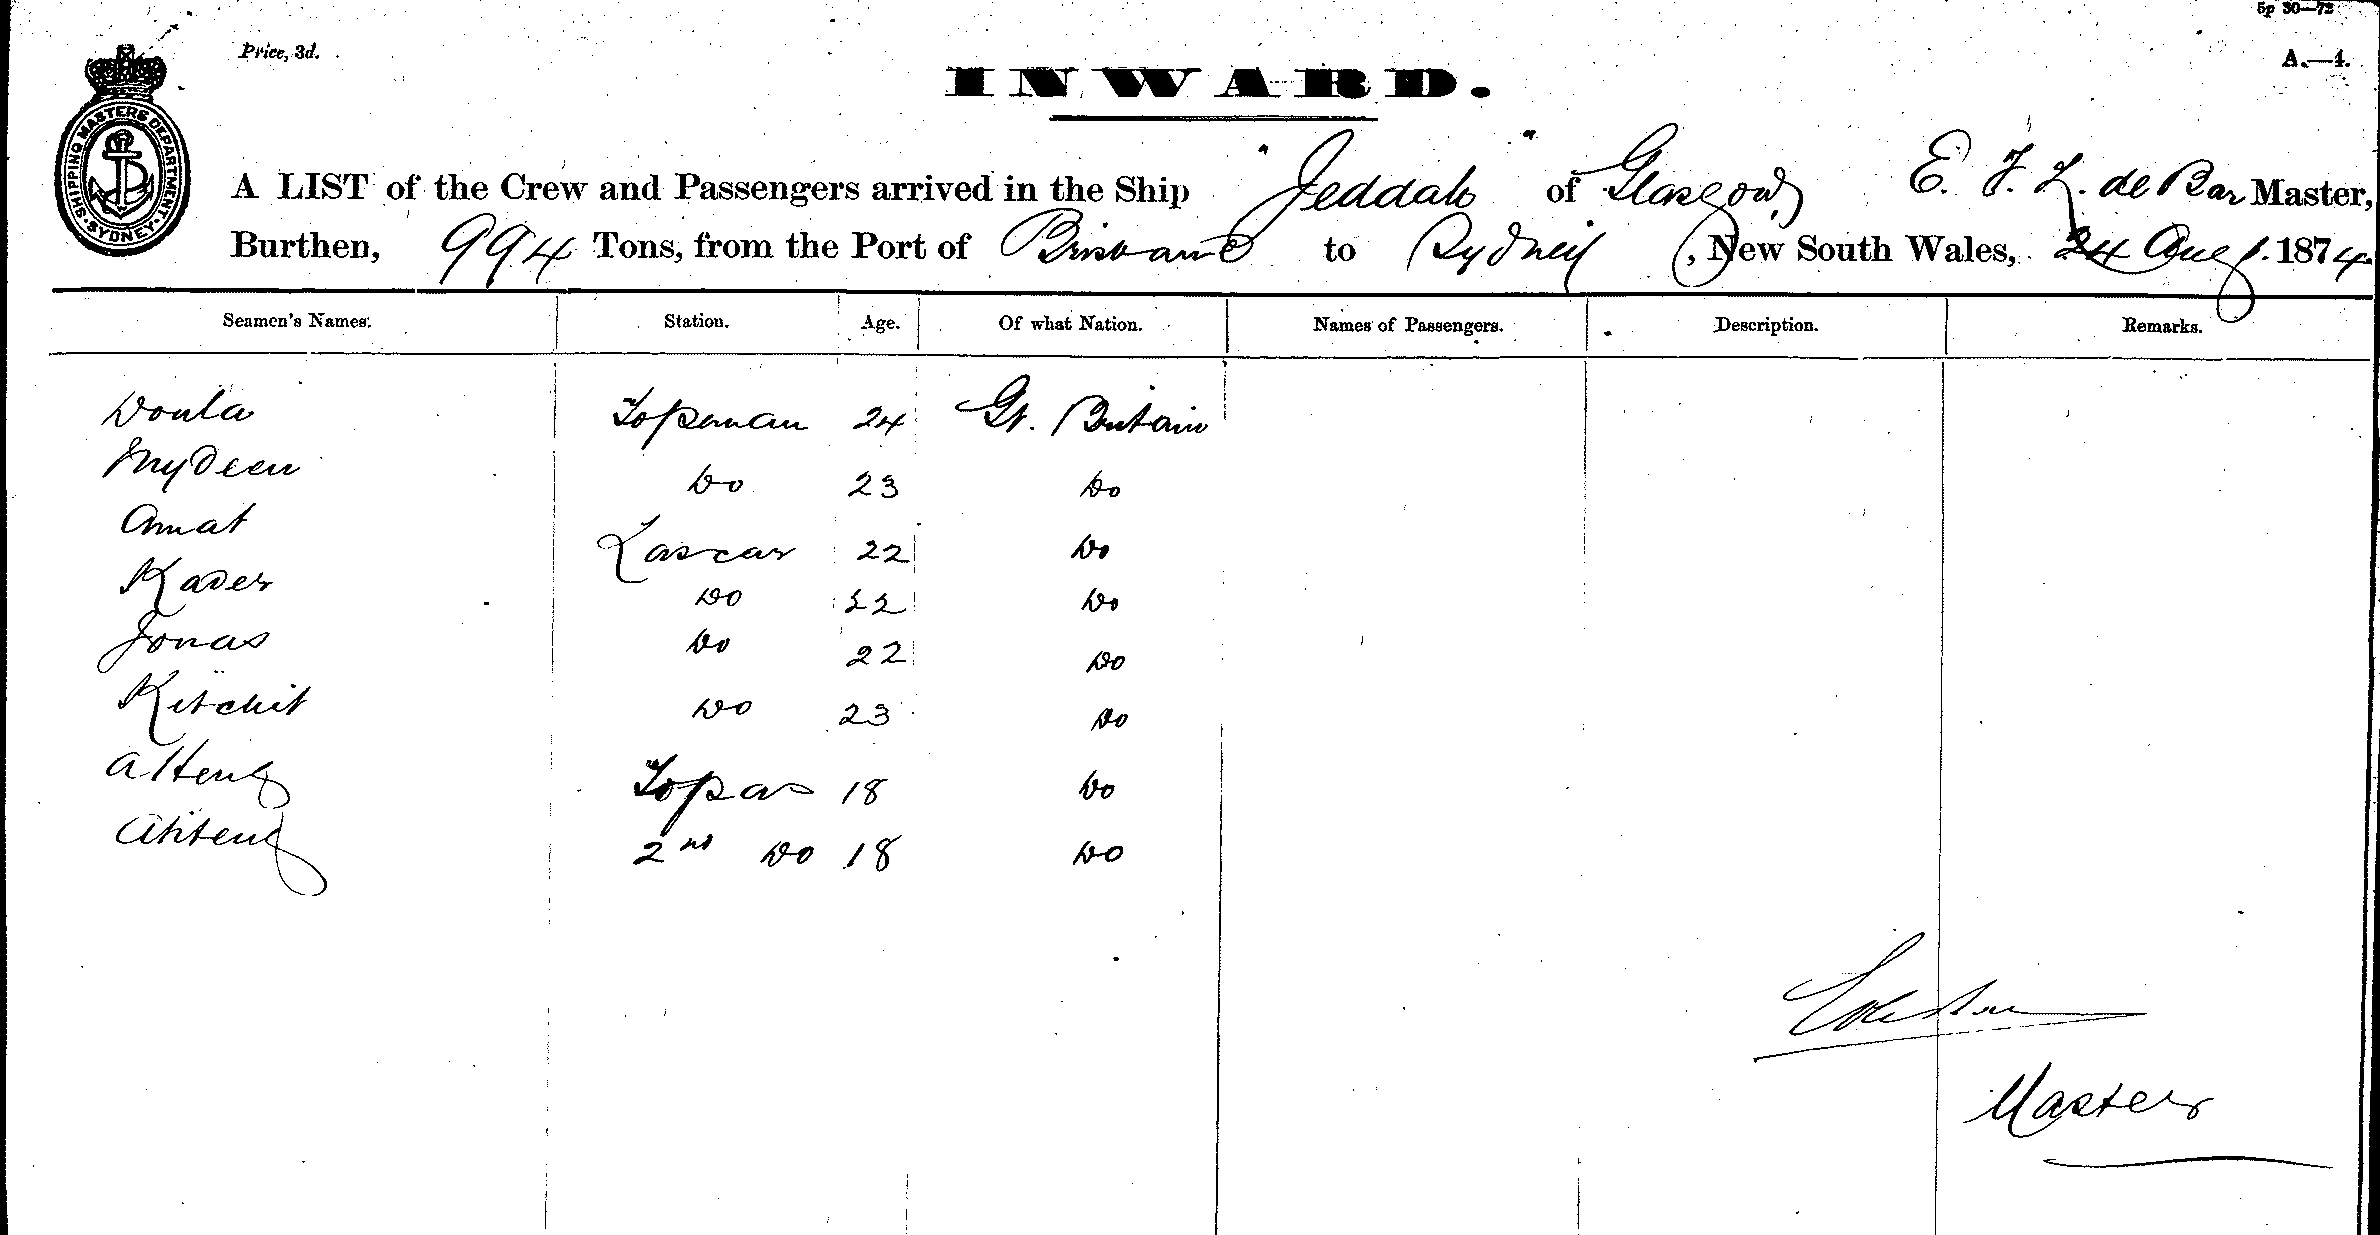 5p 30—72
Price, 3d.
A.—4.
INWARD.
SHIPPING MASTERS DEPARTMENT · SYDNEY ·
A LIST of the Crew and Passengers arrived in the Ship "Jeddah" of Glasgow, E. F. L. de Bar Master,
Burthen, 994 Tons, from the Port of Brisbane to Sydney, New South Wales, 24 Aug. 1874
Seamen's Names. Station. Age. Of what Nation. Names of Passengers. Description. Remarks.
Doula Topeman 24 Gt. Britain
MyDeen Do 23 Do
Amat Lascar 22 Do
Kader Do 22 Do
Jonas Do 22 Do
Kitchit Do 23 Do
Atteng Topas 18 Do
Ahteng 2nd Do 18 Do
Master